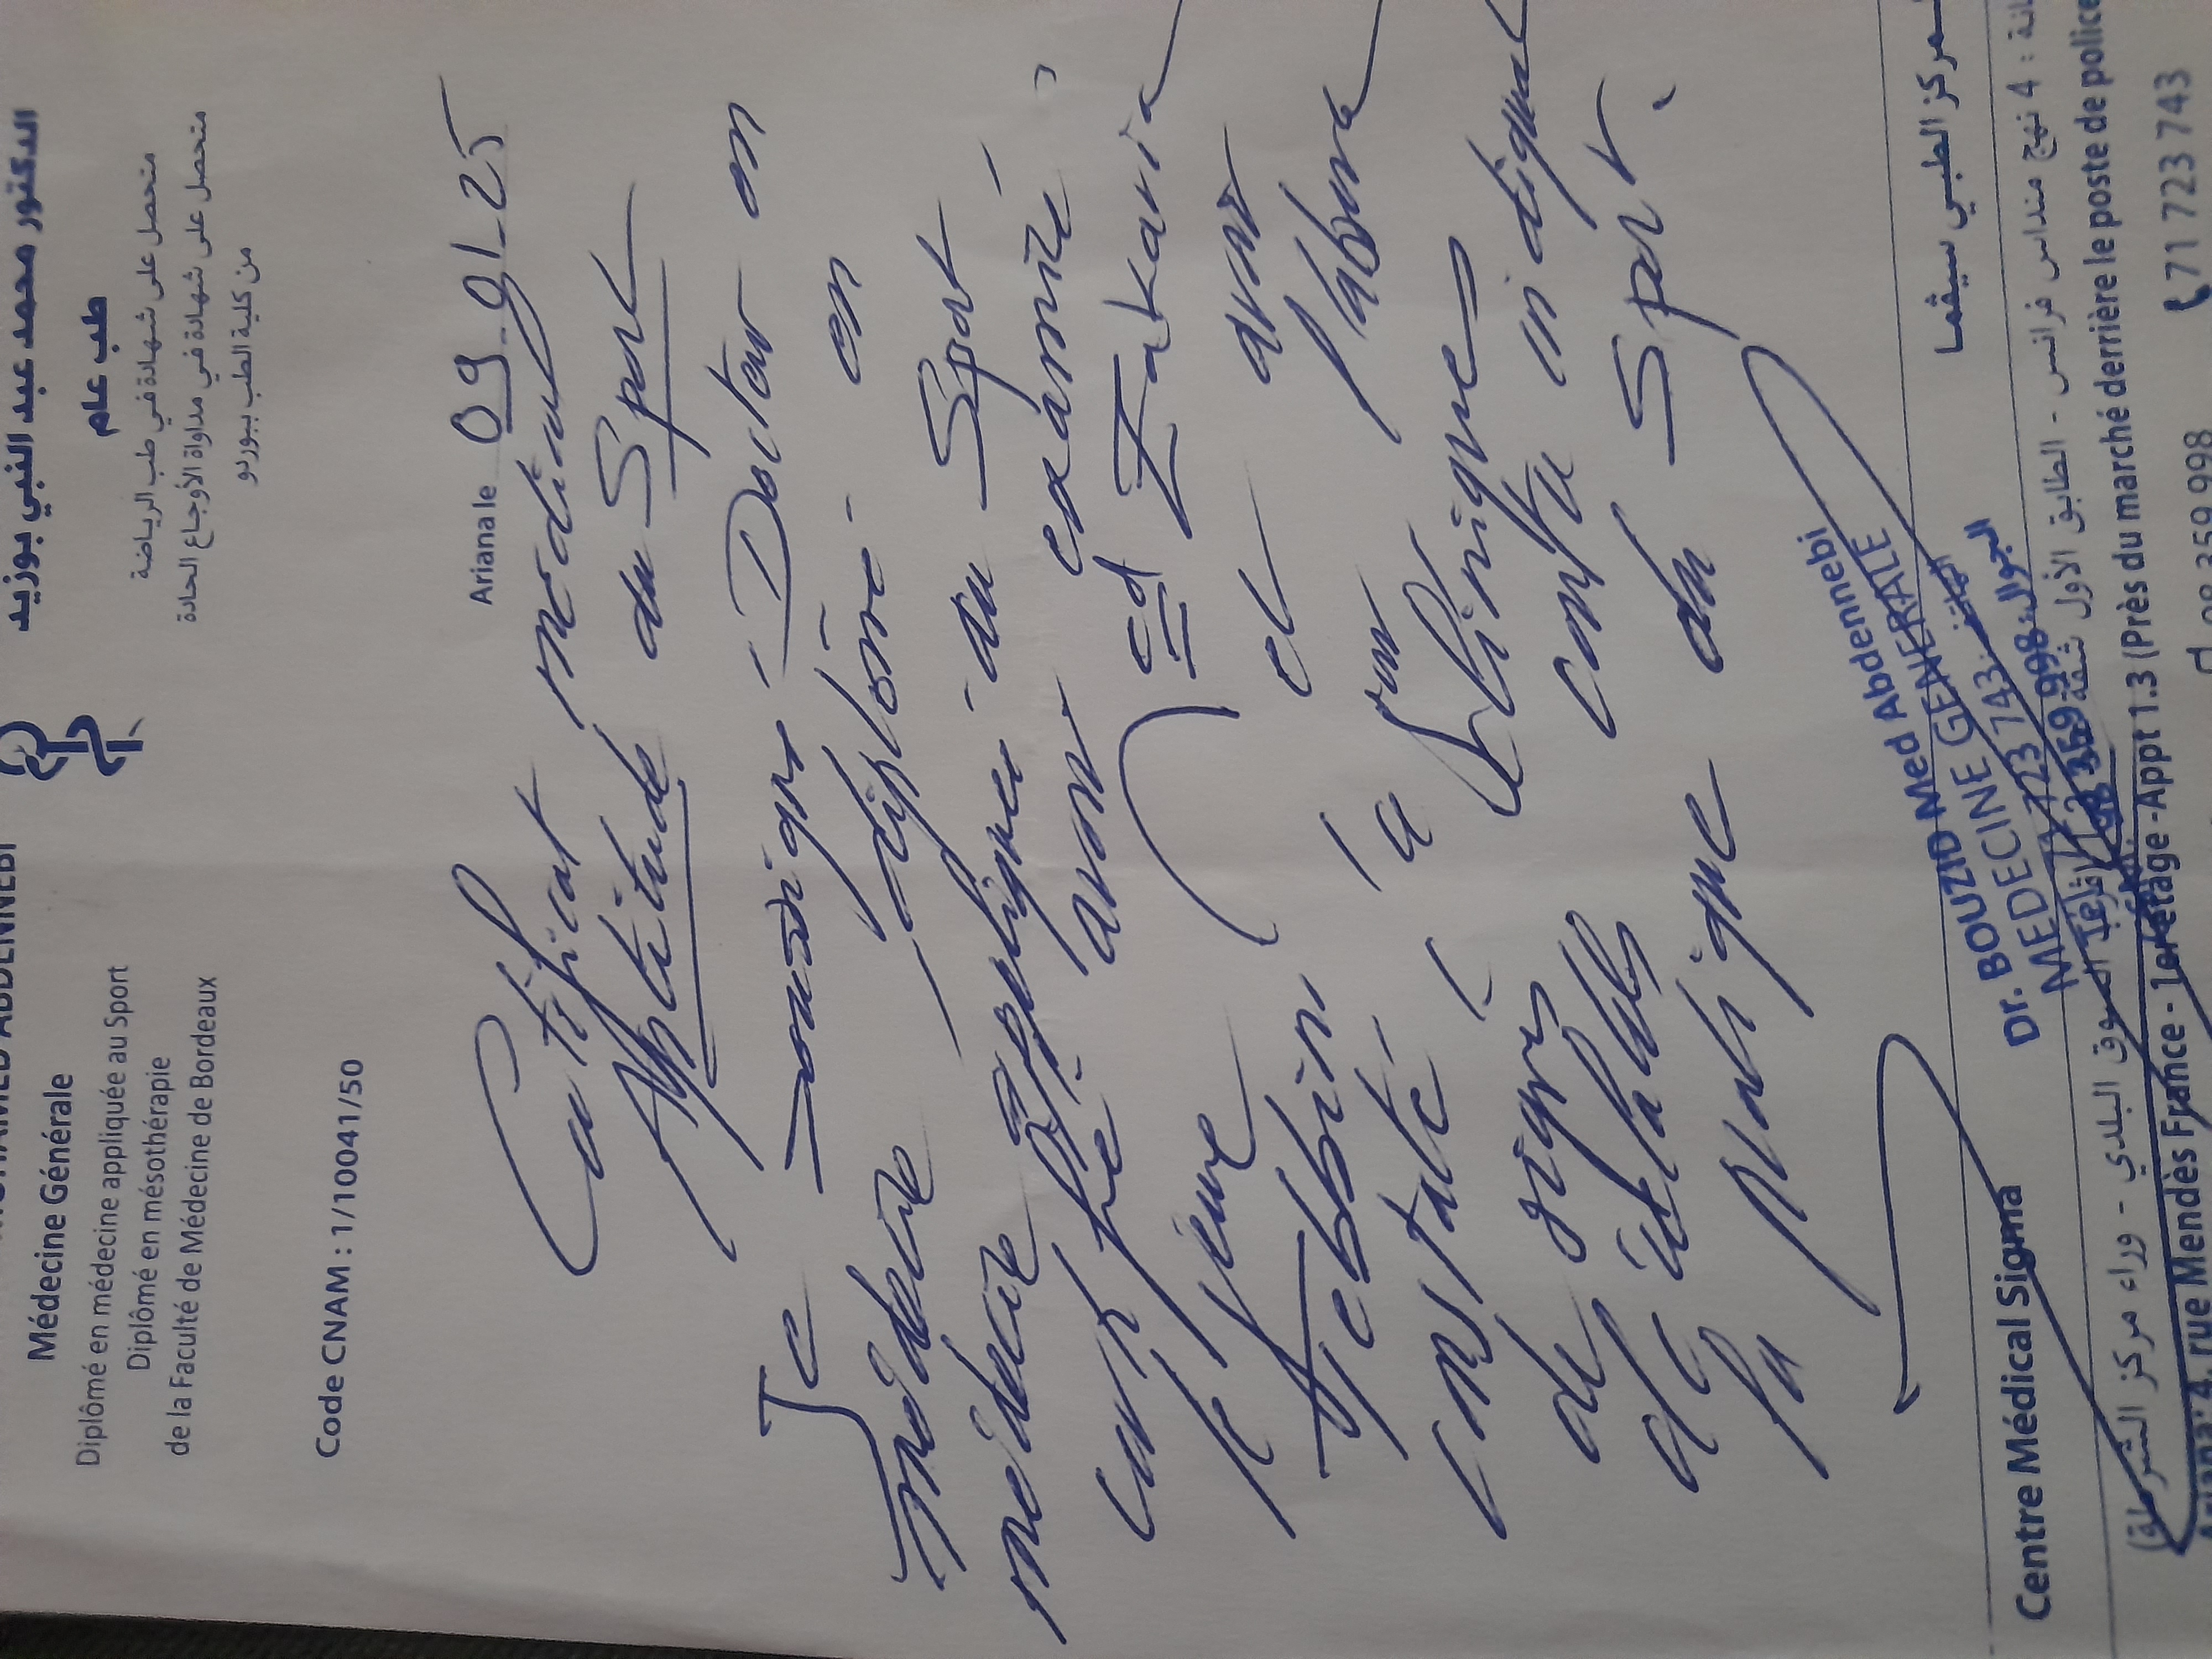 الدكتور محمد عبد النبي بوزيد
طب عام
متحصل على شهادة في طب الرياضة
متحصل على شهادة في مداواة الأوجاع الحادة
من كلية الطب ببوردو
MOHAMED ABDENNEBI
Médecine Générale
Diplômé en médecine appliquée au Sport
Diplômé en mésothérapie
de la Faculté de Médecine de Bordeaux
Code CNAM : 1/10041/50
Ariana le 09-01-25
Certificat médical
Aptitude au Sport
Je soussigné Docteur en
médecine diplômé en
médecine appliquée au Sport
avoir examiné
le jeune Zakaria
et avoir
constaté l'absence
de signes cliniques
contre indiquant
la pratique du Sport.
Dr. BOUZID Med Abdennebi
MEDECINE GENERALE
Centre Médical Sigma
المركز الطبي سيغما
4 نهج منداس فرانس - الطابق الأول شقة
السوق البلدي - وراء مركز الشرطة)
4, rue Mendès France - 1er étage - Appt 1.3 (Près du marché derrière le poste de police
71 723 743
98 359 998